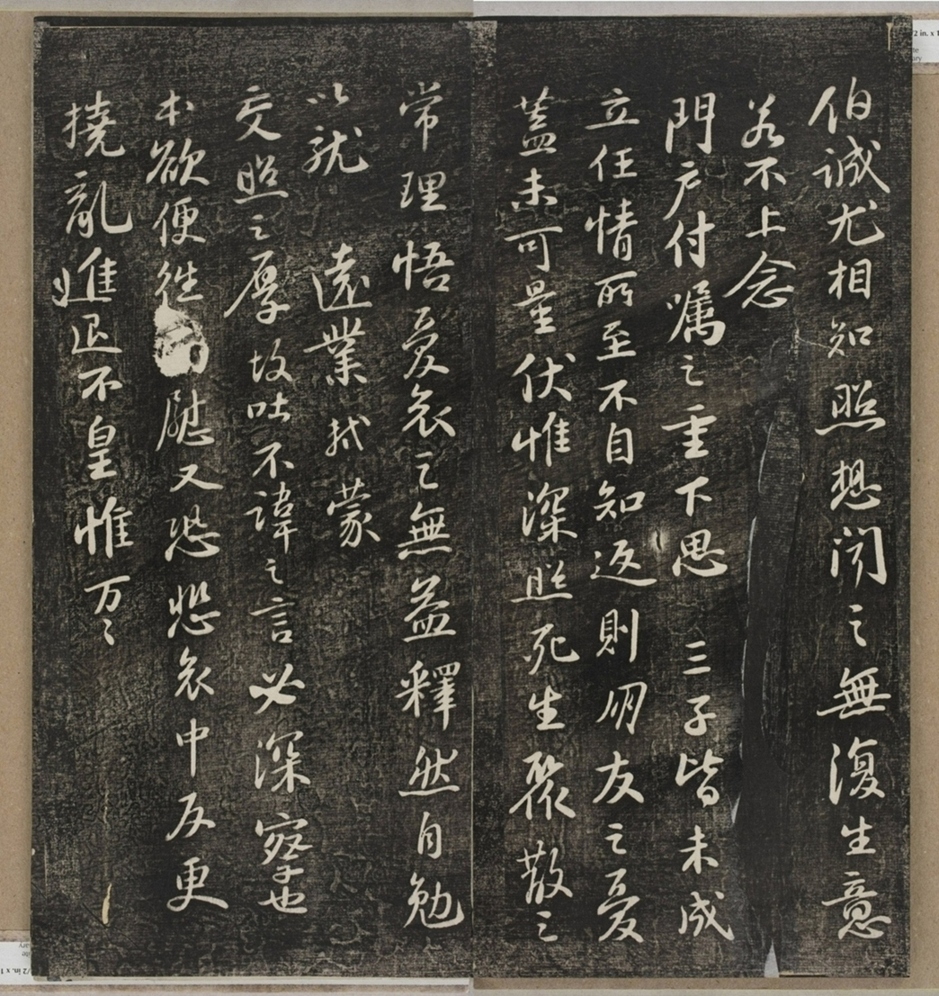 伯誠尤相知照想聞之無復生意
若不上念
門戶付囑之重下思 三子皆未成
立任情所至不自知返則朋友之愛
蓋未可量伏惟深照死生聚散之
常理悟憂哀之無益釋然自勉
以就 遠業軾蒙
交照之厚故吐不諱之言必深察也
本欲便往 慰又恐悲哀中反更
撓亂進退不皇惟万〻